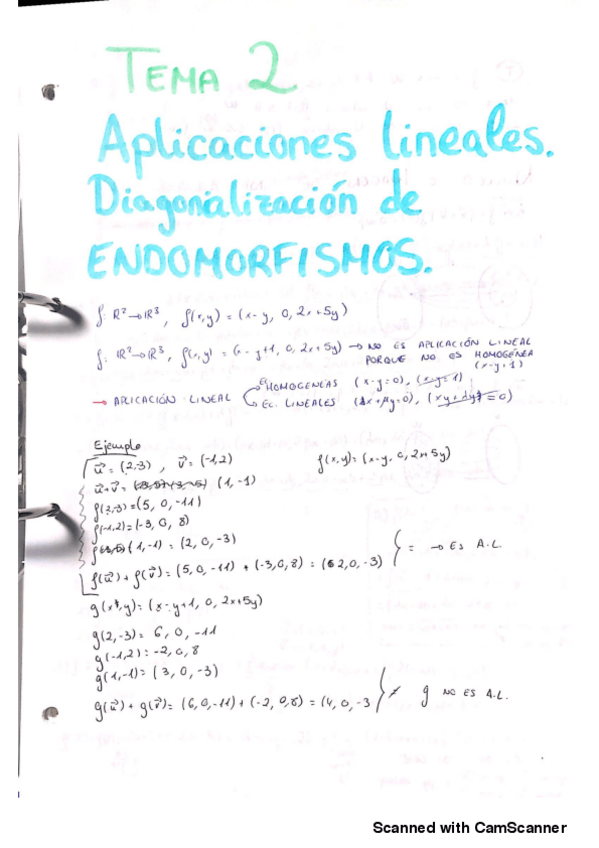 TEMA 2
Aplicaciones lineales.
Diagonalización de
ENDOMORFISMOS.
f: R²→R³, f(x,y) = (x-y, 0, 2x+5y)
f: R²→R³, f(x,y) = (x-y+1, 0, 2x+5y) → NO ES APLICACIÓN LINEAL
PORQUE NO ES HOMOGÉNEA
(x-y+1)
→ APLICACIÓN LINEAL
HOMOGENEAS (x-y=0), (x-y=1)
EC. LINEALES (λx+μy=0),
Ejemplo
u⃗ = (2,-3), v⃗ = (-1,2) f(x,y) = (x-y, 0, 2x+5y)
u⃗+v⃗ = (1,-1)
f(2,-3) = (5, 0, -11)
f(-1,2) = (-3, 0, 8)
(1,-1) = (2, 0, -3)
f(u⃗) + f(v⃗) = (5, 0, -11) + (-3,0,8) = (2,0,-3) } = → ES A.L.
g(x,y) = (x-y+1, 0, 2x+5y)
g(2,-3) = 6, 0, -11
g(-1,2) = -2, 0, 8
g(1,-1) = (3, 0, -3)
g(u⃗) + g(v⃗) = (6,0,-11) + (-2, 0,8) = (4, 0, -3 } ≠ g NO ES A.L.
Scanned with CamScanner